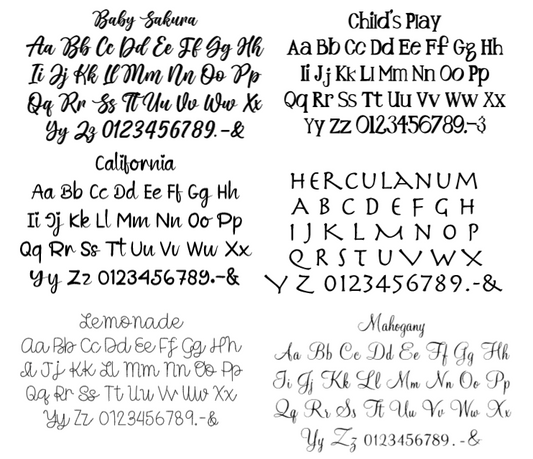 Baby Sakura
Aa Bb Cc Dd Ee Ff Gg Hh
Ii Jj Kk Ll Mm Nn Oo Pp
Qq Rr Ss Tt Uu Vv Ww Xx
Yy Zz 0123456789.-&
Child's Play
Aa Bb Cc Dd Ee Ff Gg Hh
Ii Jj Kk Ll Mm Nn Oo Pp
Qq Rr Ss Tt Uu Vv Ww Xx
Yy Zz 0123456789.-&
California
Aa Bb Cc Dd Ee Ff Gg Hh
Ii Jj Kk Ll Mm Nn Oo Pp
Qq Rr Ss Tt Uu Vv Ww Xx
Yy Zz 0123456789.-&
HERCULANUM
A B C D E F G H
I J K L M N O P
Q R S T U V W X
Y Z 0123456789.-&
Lemonade
Aa Bb Cc Dd Ee Ff Gg Hh
Ii Jj Kk Ll Mm Nn Oo Pp
Qq Rr Ss Tt Uu Vv Ww Xx
Yy Zz 0123456789.-&
Mahogany
Aa Bb Cc Dd Ee Ff Gg Hh
Ii Jj Kk Ll Mm Nn Oo Pp
Qq Rr Ss Tt Uu Vv Ww Xx
Yy Zz 0123456789.-&